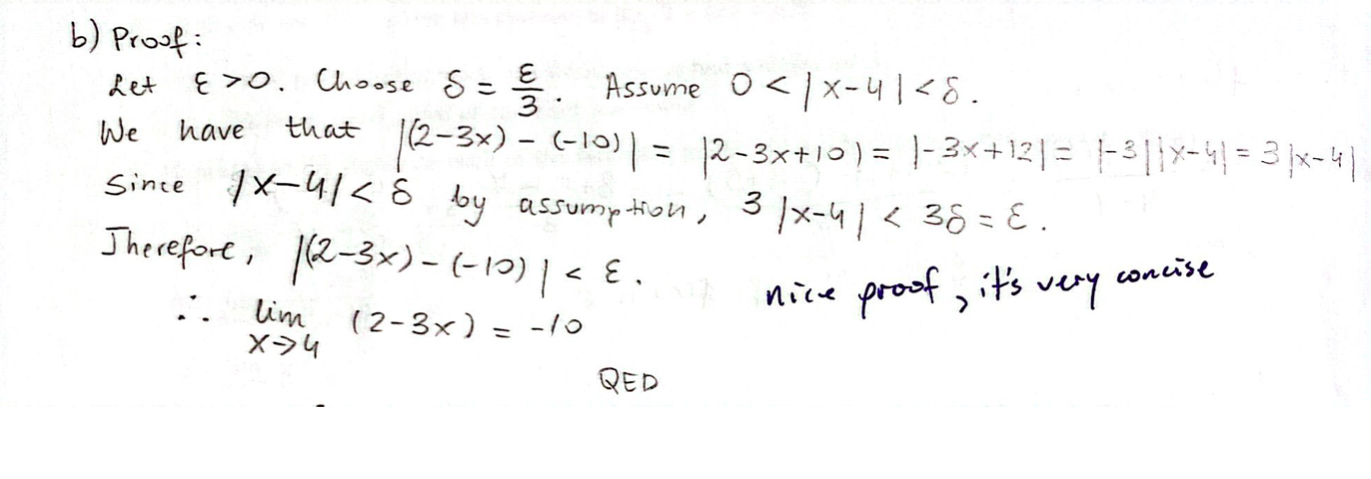 b) Proof:
Let ε > 0. Choose δ = ε/3. Assume 0 < |x-4| < δ.
We have that |(2-3x) - (-10)| = |2-3x+10) = |-3x+12| = |-3||x-4| = 3|x-4|
Since |x-4| < δ by assumption, 3|x-4| < 3δ = ε.
Therefore, |(2-3x) - (-10)| < ε.
nice proof, it's very concise
∴ lim (2-3x) = -10
x→4
QED